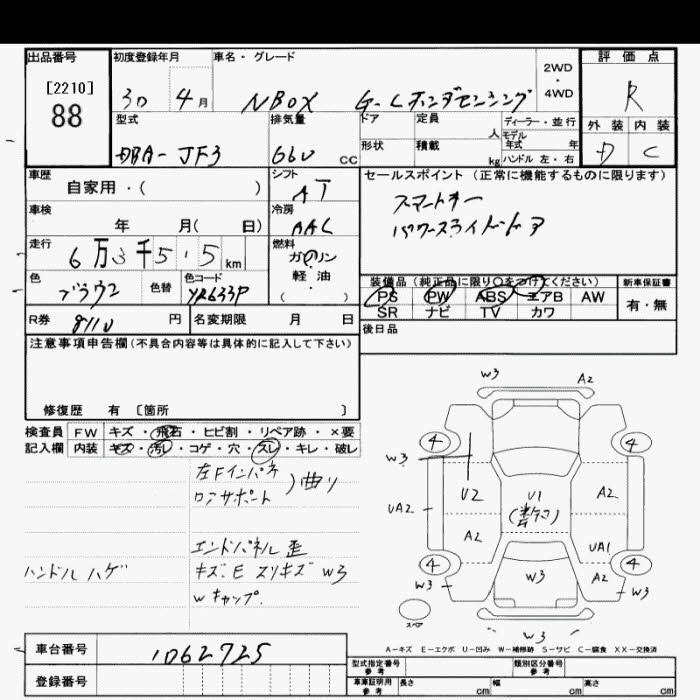 出品番号 初度登録年月 車名・グレード 2WD ・ 4WD 評価点
[2210]
88
30 4月 NBOX G-Lホンダセンシング R
型式 排気量 ドア 定員 人 ディーラー・並行
モデル年式 年
外装 内装
DBA-JF3 660 CC 形状 積載 kg ハンドル 左・右 D C
車歴 シフト セールスポイント (正常に機能するものに限ります)
自家用・( ) AT スマートキー
車検 冷房 パワースライドドア
年 月( 日) AAC
走行 燃料
6万3千5.5km ガソリン
軽油
( )
色 色替 色コード 装備品 (純正品に限り○をつけてください) 新車保証書
ブラウン YR633P PS PW ABS エアB AW 有・無
SR ナビ TV カワ
R券 8110 円 名変期限 月 日
後日品
注意事項申告欄(不具合内容等は具体的に記入して下さい)
修復歴 有 〔箇所 〕
検査員 FW キズ・飛石・ヒビ割・リペア跡・×要
記入欄 内装 キズ・汚レ・コゲ・穴・スレ・キレ・破レ
左Fインパネ
ロアサポート )曲り
エンドパネル 歪
ハンドルハゲ キズ.E スリキズ W3
Wキャップ.
W3 A2
4 4
W3
U2 U1 A2
UA2
A2 UA1
4 4
W3 W3 A2 W3
スペア
W3
A-キズ E-エクボ U-凹み W-補修跡 S-サビ C-腐食 XX-交換済
車台番号 1062725
登録番号
型式指定番号 参考 類別区分番号 参考
車庫証明用 参考 長さ cm 幅 cm 高さ cm